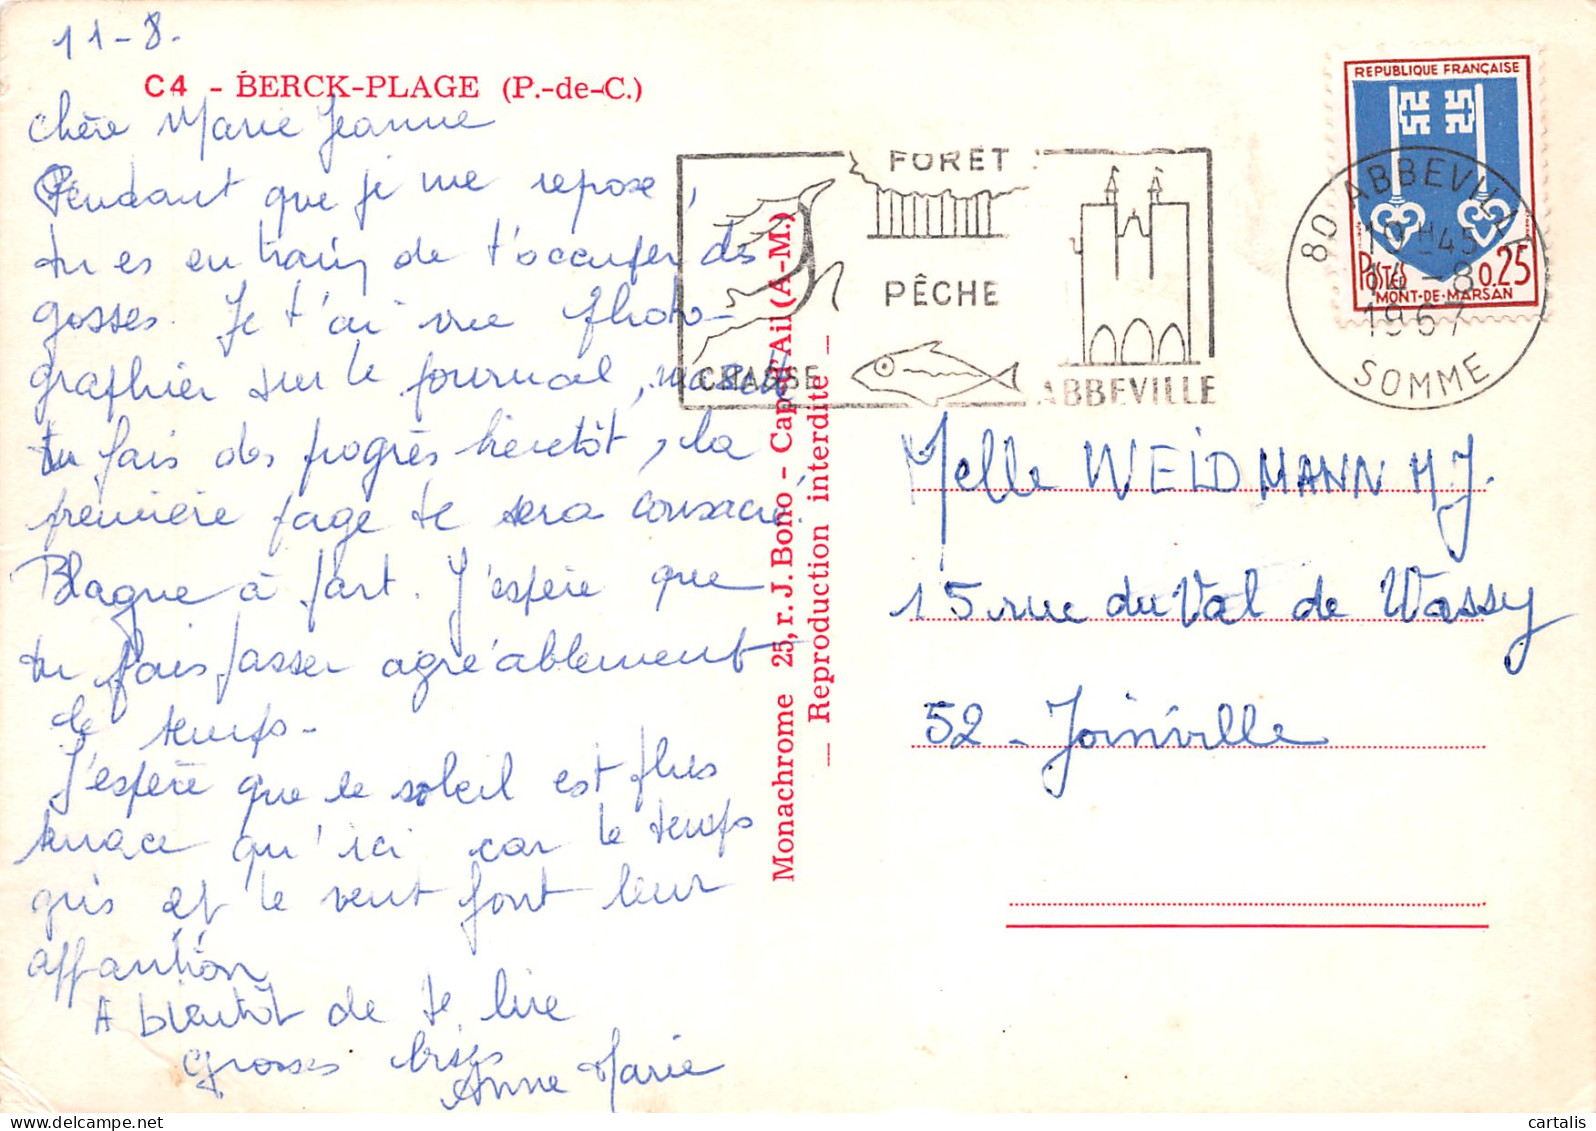 11-8.
C4 - BERCK-PLAGE (P.-de-C.)
Chère Marie Jeanne
Pendant que je me repose,
tu es en train de t'occuper des
gosses. Je t'ai vue photo-
graphier sur le journal,
tu fais des progrès bientôt, la
première page te sera consacré!
Blague à part. J'espère que
tu fais passer agréablement
le temps-
J'espère que le soleil est plus
tenace qu'ici car le temps
gris et le vent font leur
apparition
A bientôt de te lire
Grosses bises
Anne Marie
Monachrome 25, r. J. Bono - Cap-d'Ail (A-M.)
— Reproduction interdite —
FORÊT
PÊCHE
CHASSE
ABBEVILLE
REPUBLIQUE FRANÇAISE
POSTES
0.25
MONT-DE-MARSAN
80 ABBEVILLE
10 H 45
14 - 8
1967
SOMME
Melle WEIDMANN M J.
15 rue du Val de Wassy
52 - Joinville
© cartalis